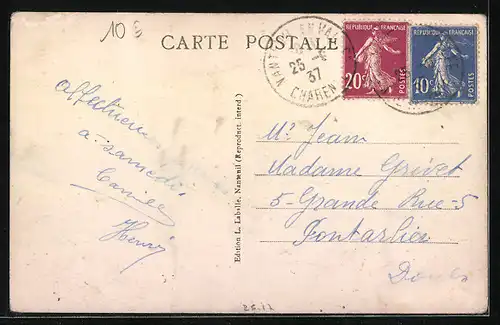 10
CARTE POSTALE
REPUBLIQUE FRANÇAISE
20c
POSTES
REPUBLIQUE FRANÇAISE
10c
POSTES
25
37
CHAREN
a samedi
Camille
Henri
Edition L. Labville, Nanteuil (Reproduct. interd)
Mr Jean
Madame Grivet
5-Grande Rue-5
Pontarlier
Doubs